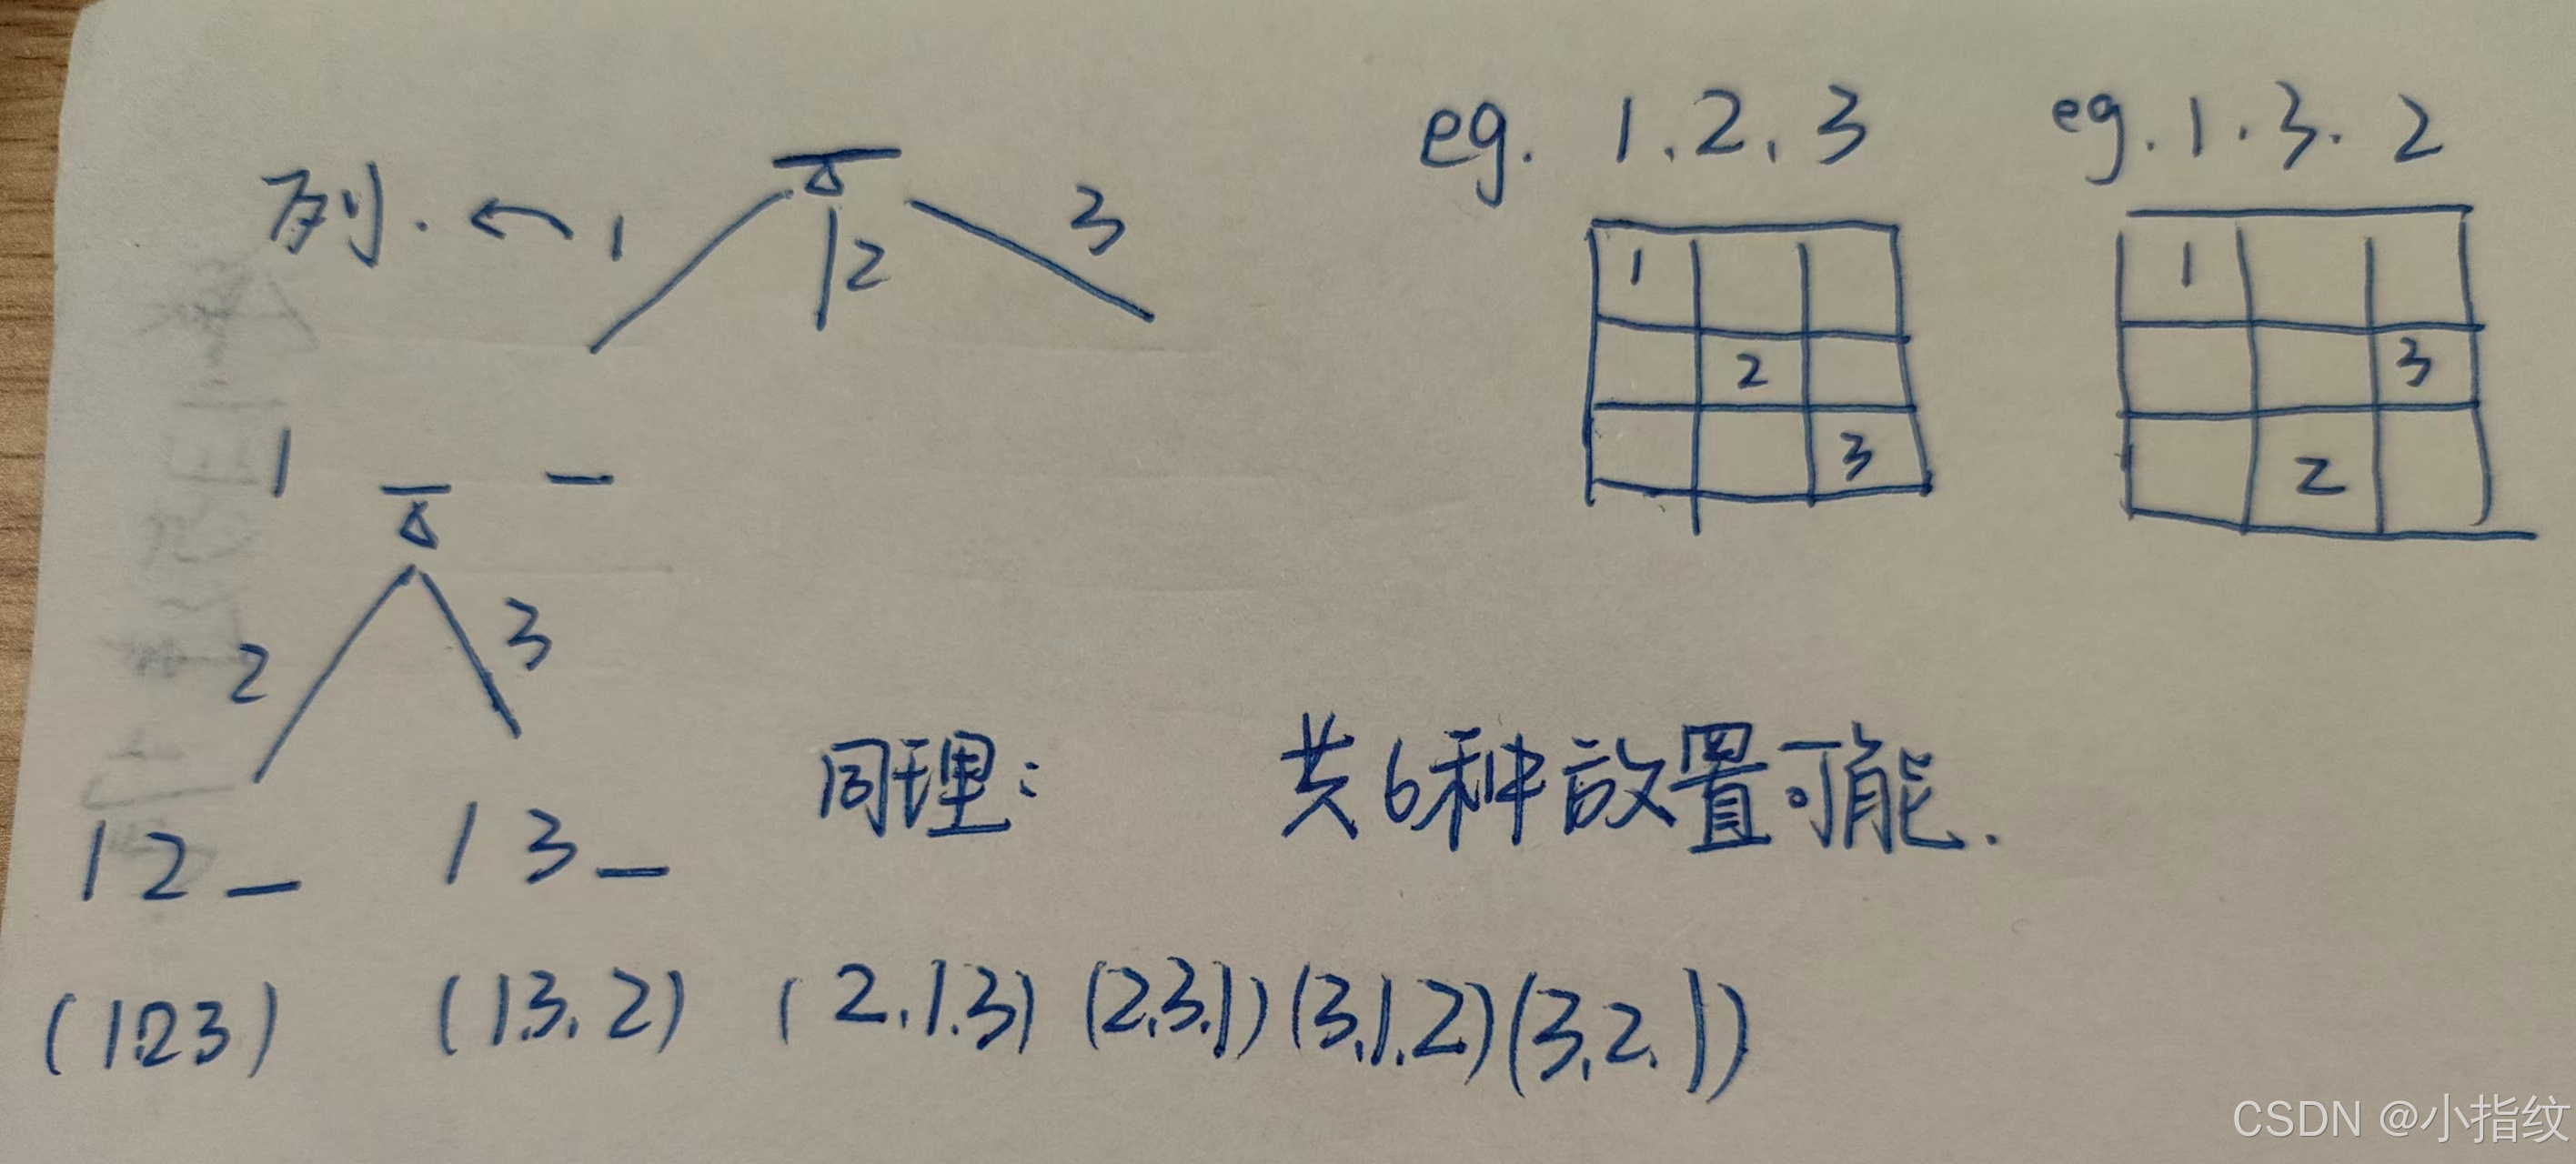 eg. 1.2.3
eg.1.3.2
列. ← 1
2
3
1
2
3
1
3
2
1 _ _
2
3
12_
13_
同理:
共6种放置可能.
(1.2.3) (1.3.2) (2.1.3) (2.3.1) (3.1.2) (3.2.1)
CSDN @小指纹